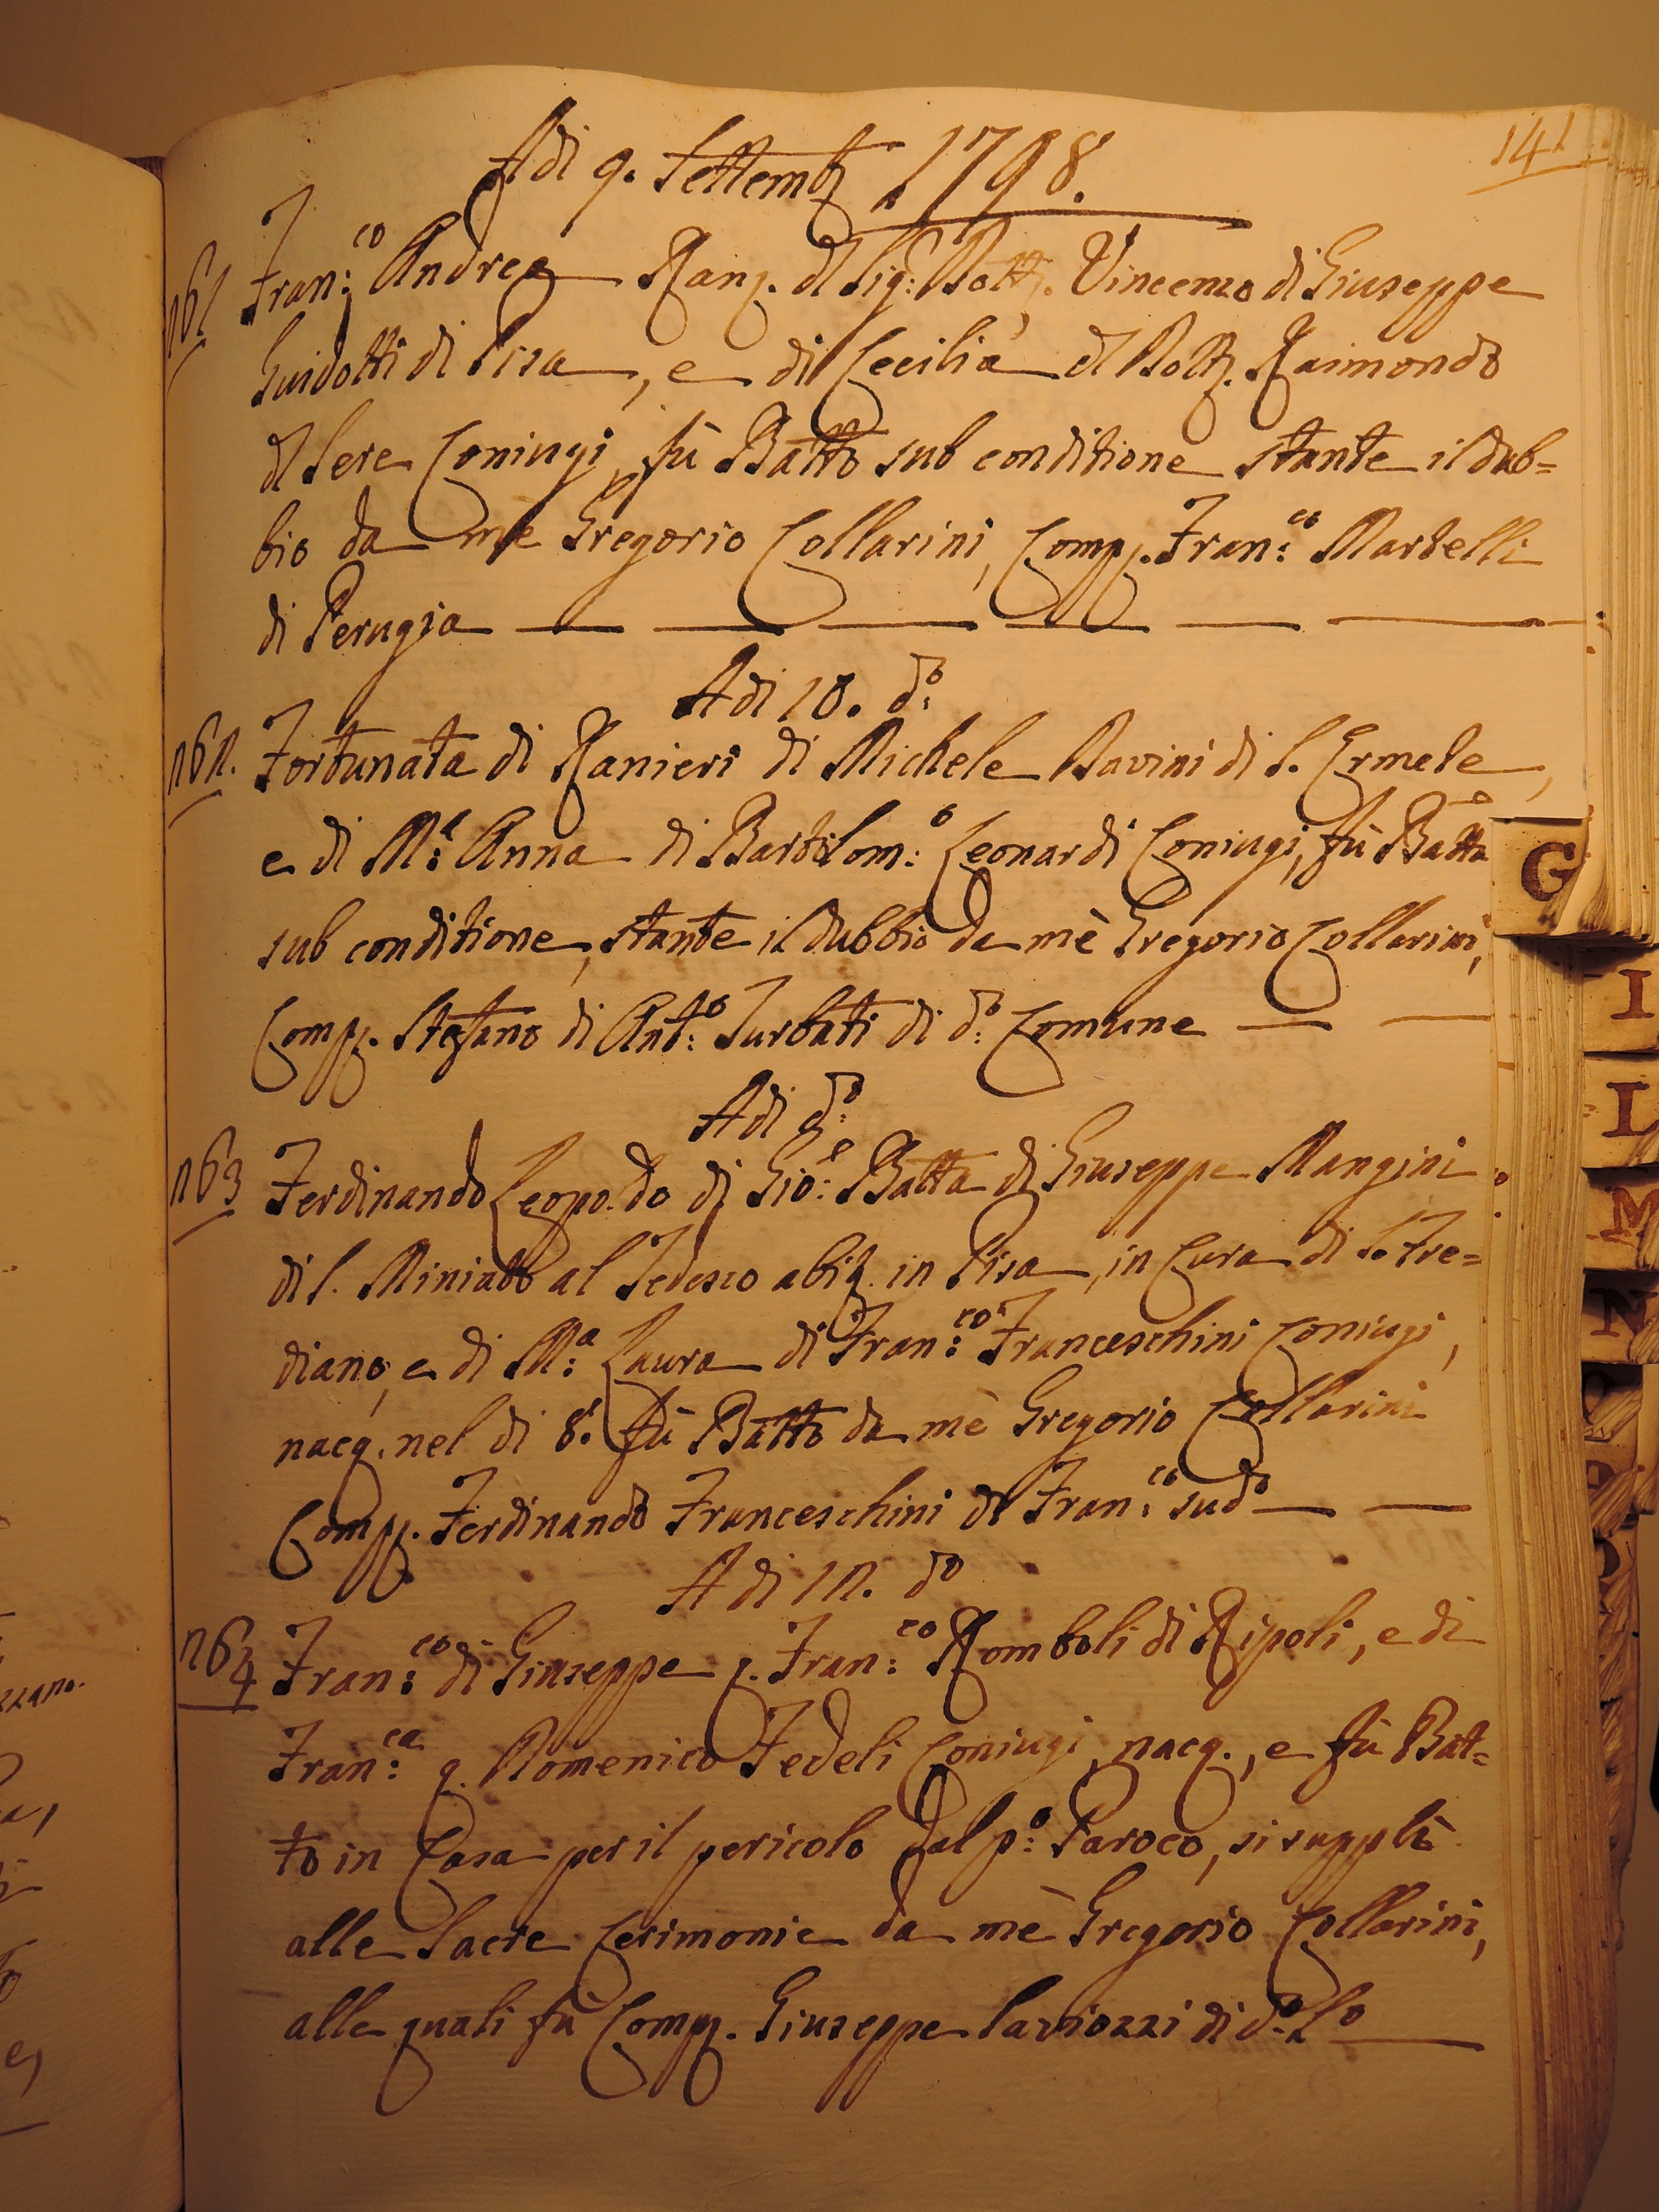 141
Adi 9. Settemb. 1798.
n61 Fran:co Andrea Ran. del Sig: Dott. Vincenzo di Giuseppe
Guidotti di Pisa, e di Cecilia del Dott. Raimondo
del Sere Coniugi, fù Batto sub conditione stante il dub=
bio da mè Gregorio Collarini, Comp. Fran:co Martelli
di Perugia
Adi 10. do:
n62. Fortunata di Ranieri di Michele Davini di S. Ermete,
e di Ma: Anna di Bartolom:o Leonardi Coniugi, fù Batta
sub conditione, stante il dubbio da mè Gregorio Collarini,
Comp. Stefano di Ant:o Turbati di do: Comune
Adi do:
n63 Ferdinando Leopo.do di Gio: Batta di Giuseppe Mangini
di S. Miniato al Tedesco abit. in Pisa, in Cura di S. Fre=
diano, e di Ma: Laura di Fran:co Franceschini Coniugi,
nacq. nel di 8. fù Batto da mè Gregorio Collarini
Comp. Ferdinando Franceschini di Fran:co sudo
Adi 12. do
n64 Fran:co di Giuseppe q. Fran:co Romboli di Ripoli, e di
Fran:ca q. Domenico Fedeli Coniugi, nacq., e fù Bat=
to in Casa per il pericolo dal po: Paroco, si supplì
alle Sacre Cerimonie da mè Gregorio Collarini,
alle quali fù Comp. Giuseppe Saviozzi di do: Lo
G
I
L
M
N